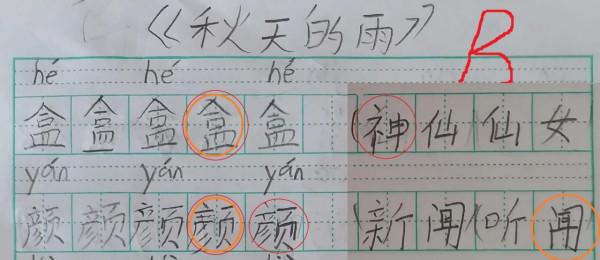 《秋天的雨》 B
hé hé hé
盒 盒 盒 盒 盒 (神 仙 仙 女
yán yán yán
颜 颜 颜 颜 颜 (新 闻 (听 闻